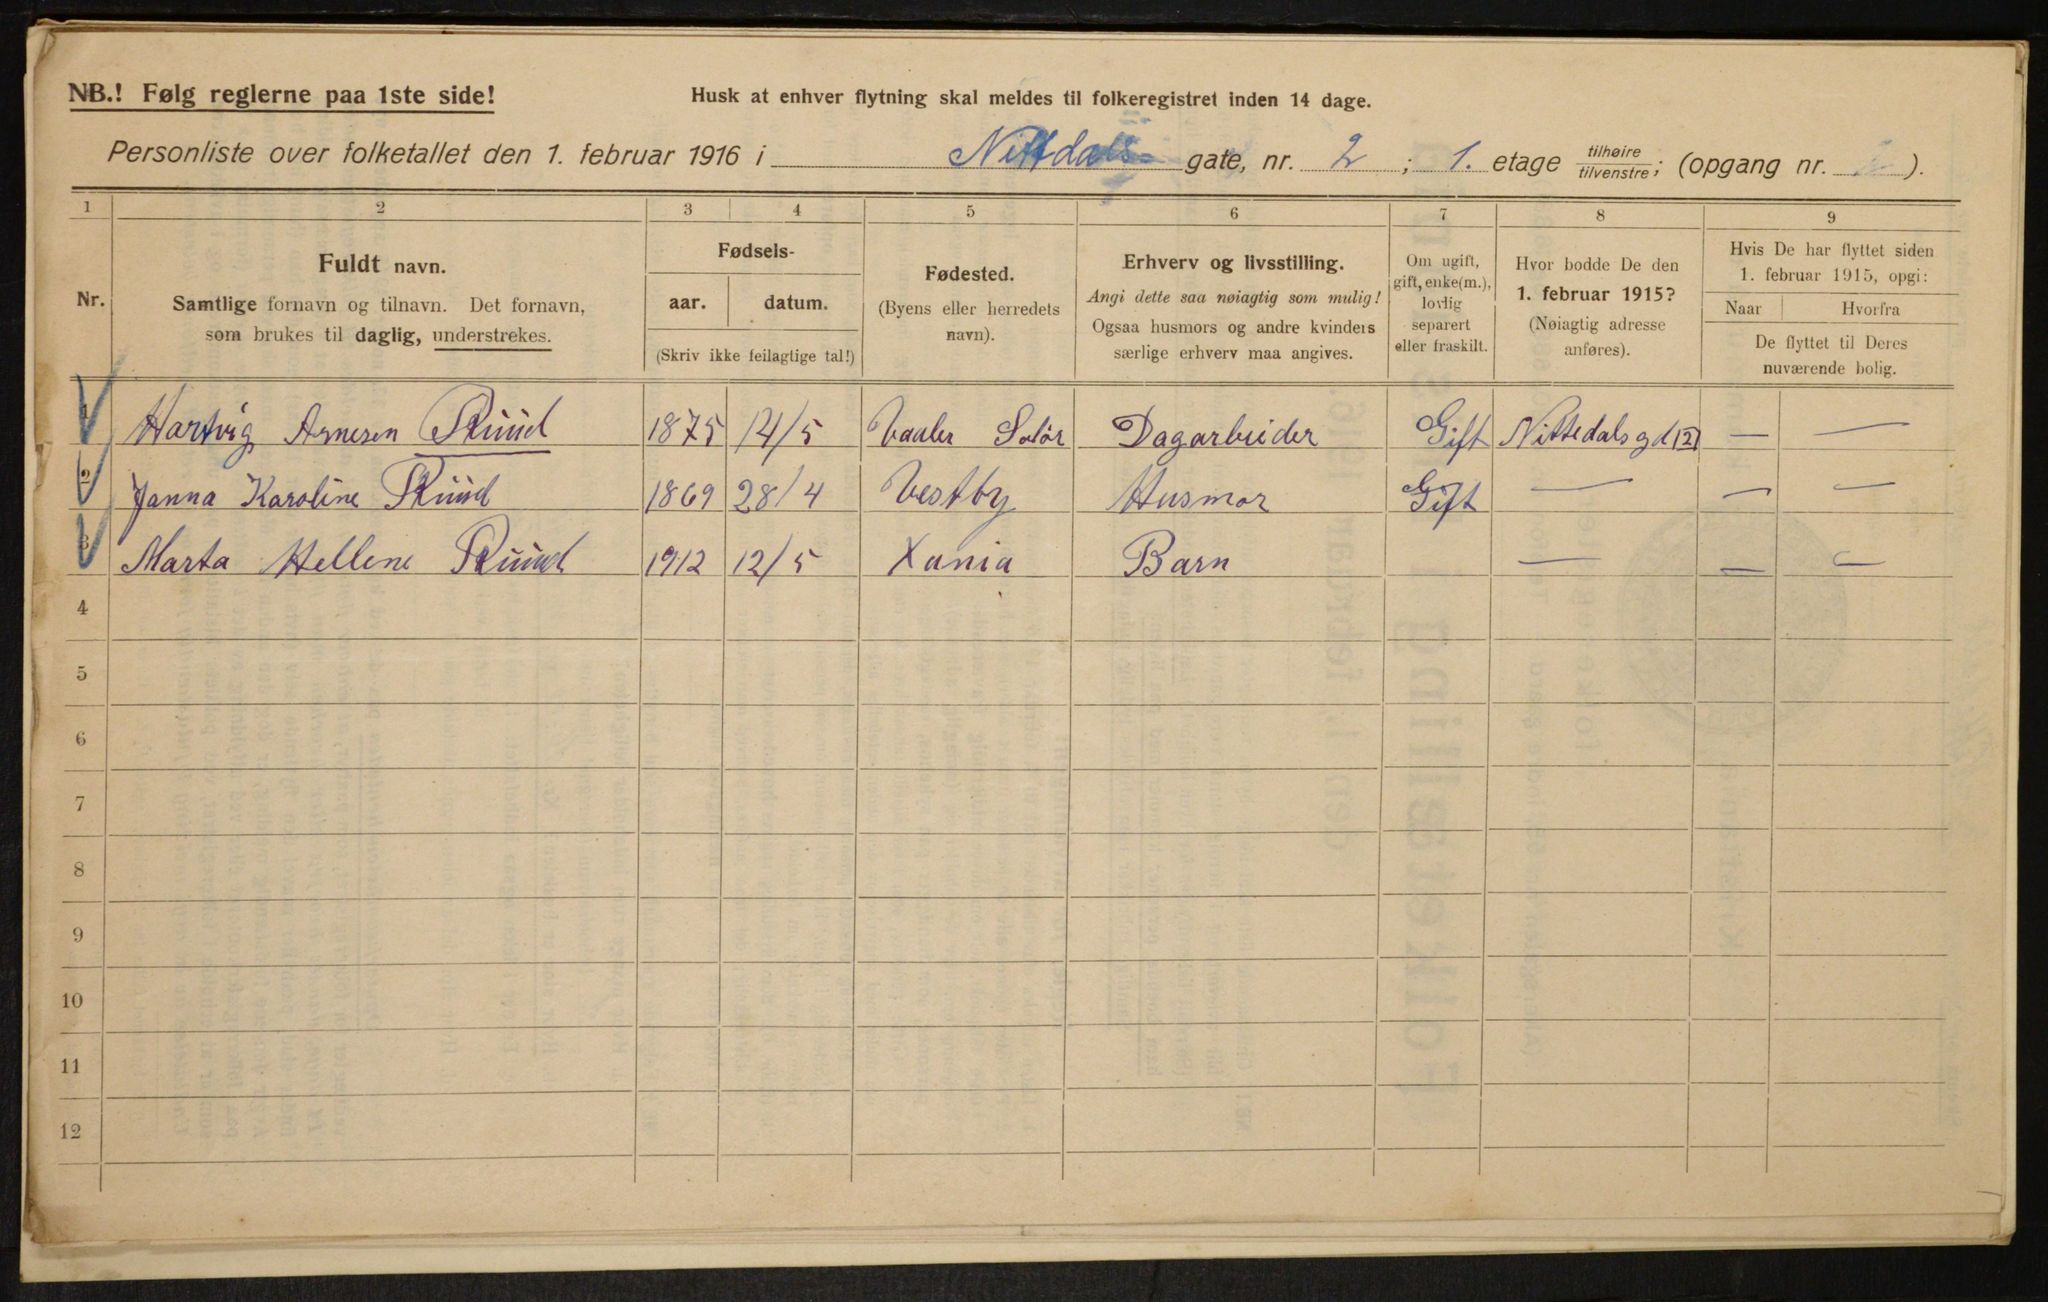 NB.! Følg reglerne paa 1ste side!
Husk at enhver flytning skal meldes til folkeregistret inden 14 dage.
Personliste over folketallet den 1. februar 1916 i Nittdals- gate, nr. 2 ; 1. etage tilhøire/tilvenstre; (opgang nr. ).
1 2 3 4 5 6 7 8 9
Nr.
Fuldt navn.
Samtlige fornavn og tilnavn. Det fornavn,
som brukes til daglig, understrekes.
Fødsels-
aar. datum.
(Skriv ikke feilagtige tal!)
Fødested.
(Byens eller herredets
navn).
Erhverv og livsstilling.
Angi dette saa nøiagtig som mulig!
Ogsaa husmors og andre kvinders
særlige erhverv maa angives.
Om ugift,
gift, enke(m.),
lovlig
separert
eller fraskilt.
Hvor bodde De den
1. februar 1915?
(Nøiagtig adresse
anføres).
Hvis De har flyttet siden
1. februar 1915, opgi:
Naar Hvorfra
De flyttet til Deres
nuværende bolig.
1 Hartvig Arnesen Ruud 1875 14/5 Vaaler Solør Dagarbeider Gift Nittedals gd 2 — —
2 Janna Karoline Ruud 1869 28/4 Vestby Husmor Gift — — —
3 Marta Hellene Ruud 1912 12/5 Xania Barn — — —
4
5
6
7
8
9
10
11
12